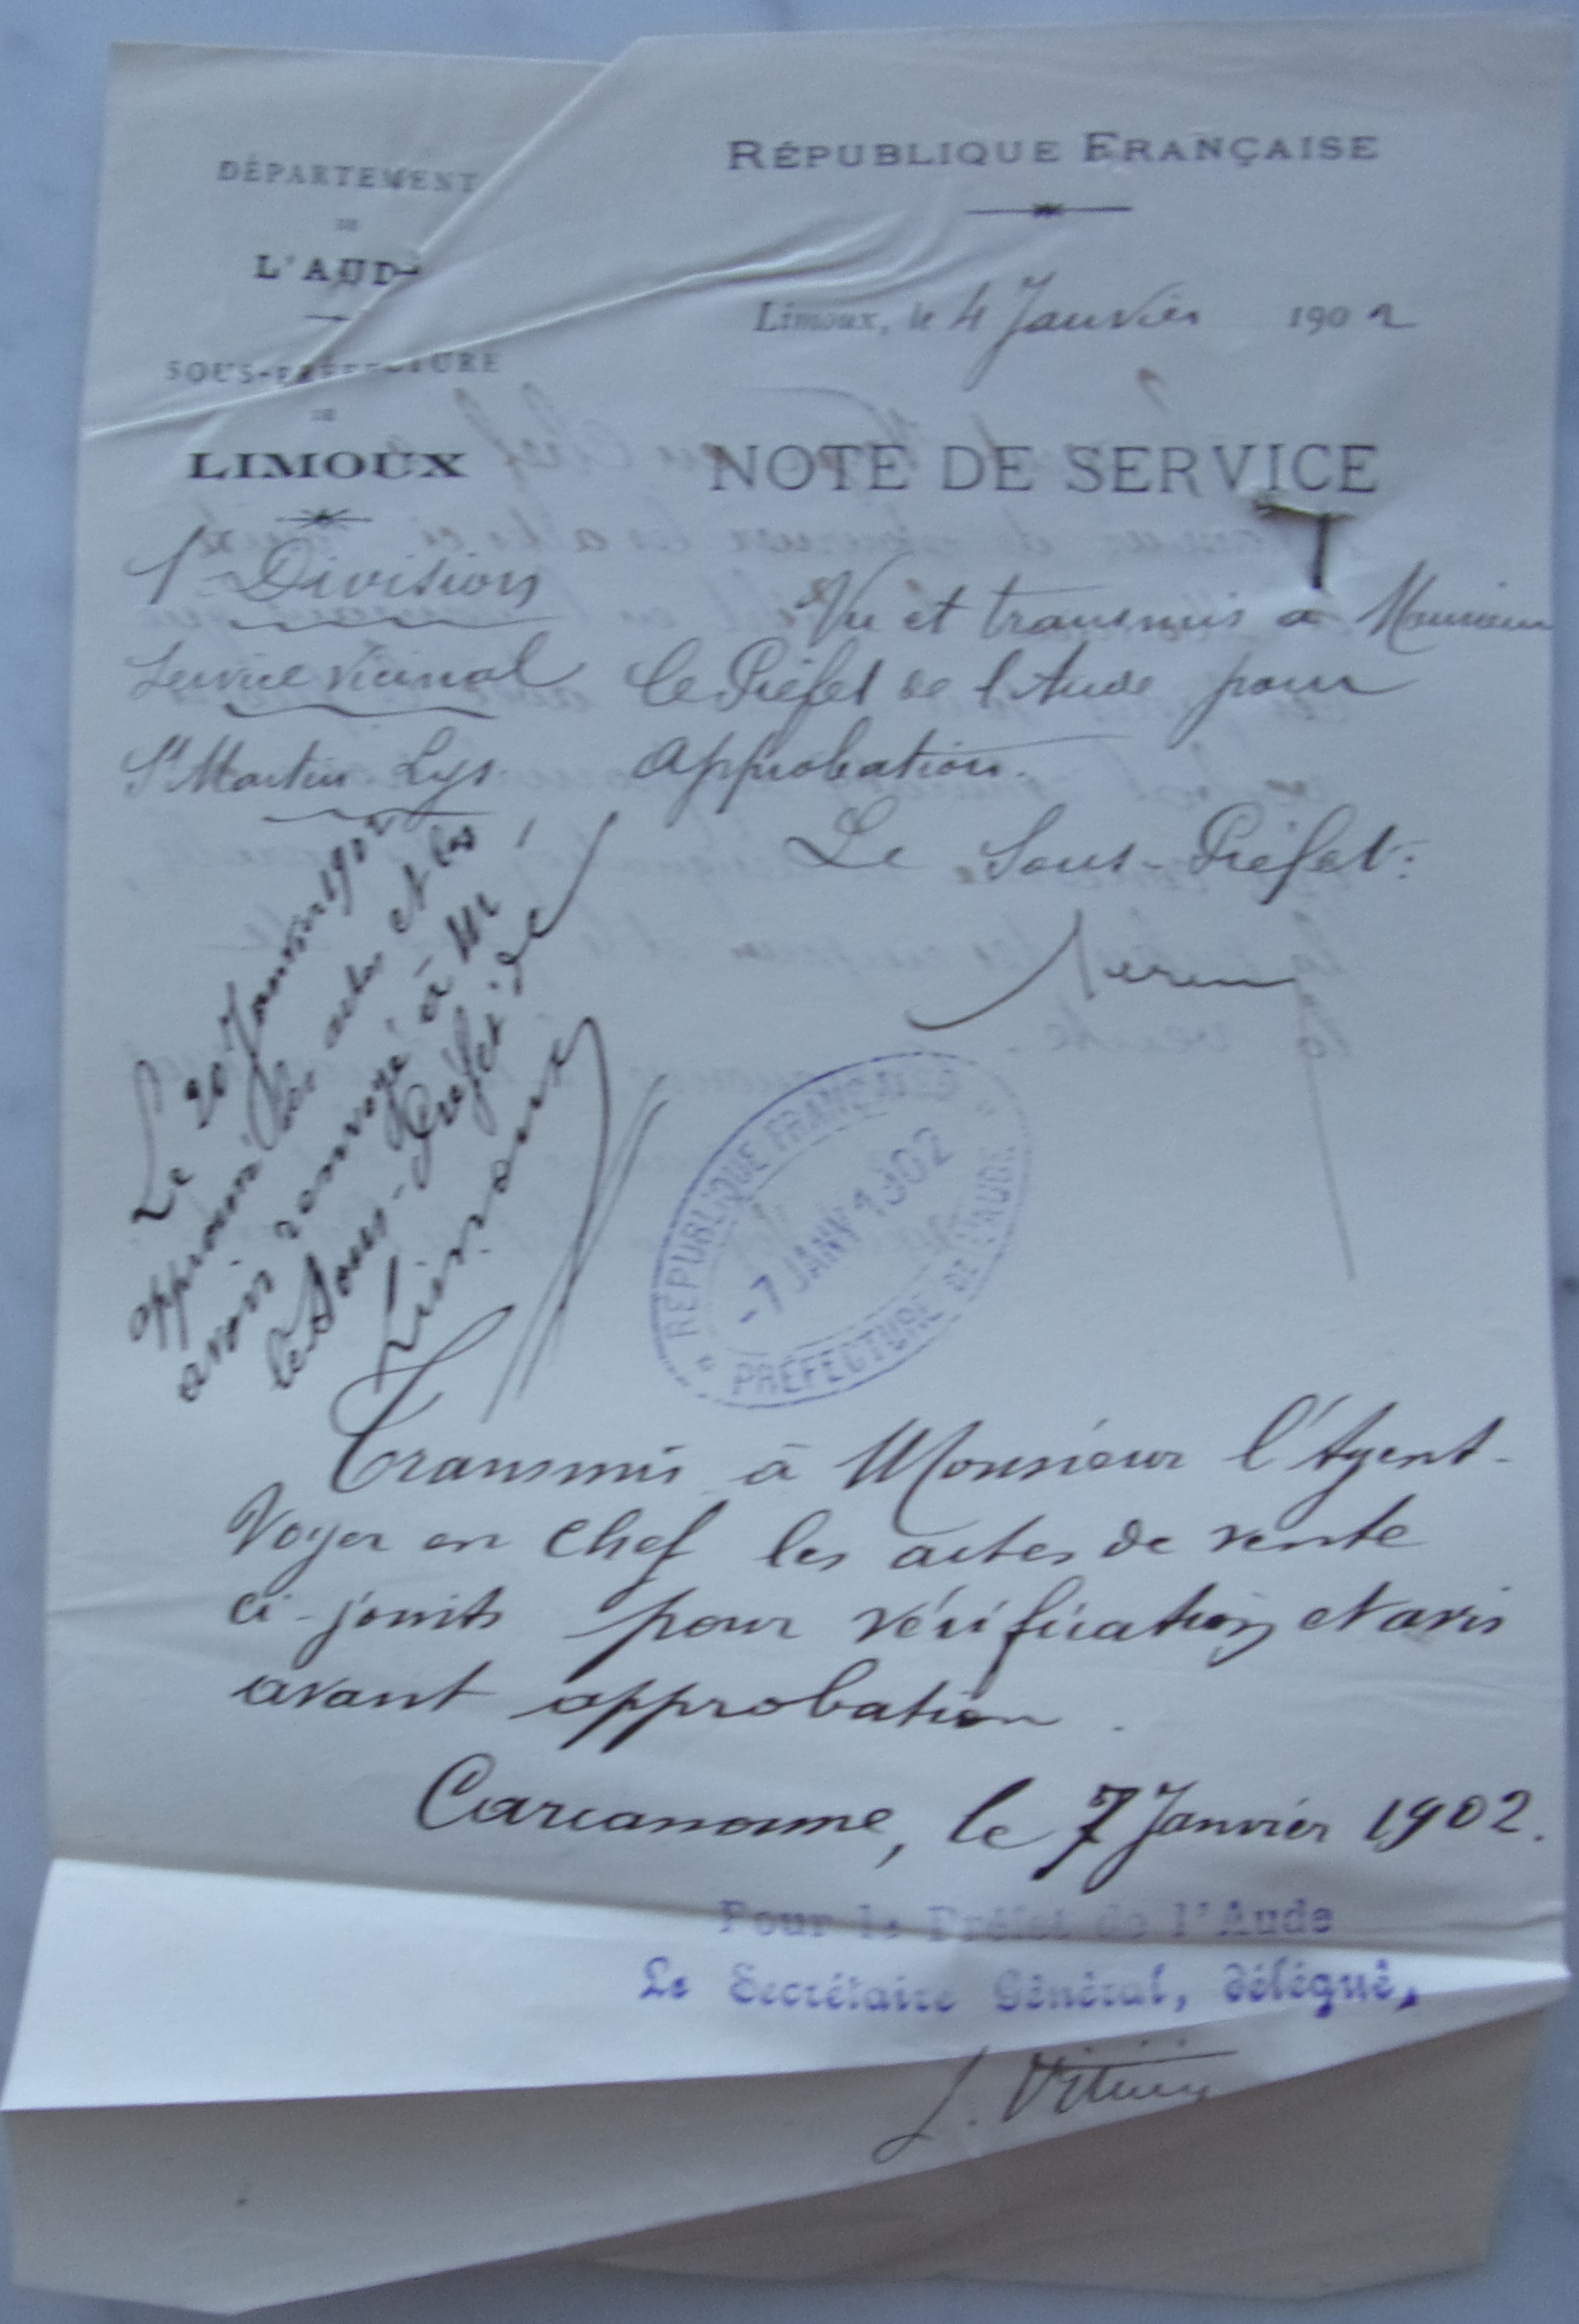 DÉPARTEMENT
DE
L'AUDE
SOUS-PRÉFECTURE
DE
LIMOUX
1re Division
Service vicinal
St Martin Lys
RÉPUBLIQUE FRANÇAISE
Limoux, le 4 Janvier 1902
NOTE DE SERVICE
Vu et transmis à Monsieur
le Préfet de l'Aude pour
approbation.
Le Sous-Préfet:
Le 20 Janvier 1902
approuvé les actes et les
avoir renvoyé à Mr
le Sous-Préfet de
Limoux
RÉPUBLIQUE FRANÇAISE
-7 JANV 1902
PRÉFECTURE DE L'AUDE
Transmis à Monsieur l'Agent-
Voyer en Chef les actes de vente
ci-joints pour vérification et avis
avant approbation.
Carcassonne, le 7 Janvier 1902.
Pour le Préfet de l'Aude
Le Secrétaire Général, délégué,